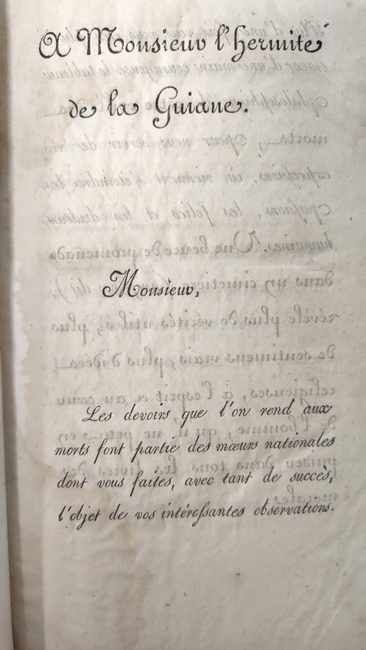 A Monsieur l'hermite
de la Guiane.
Monsieur,
Les devoirs que l'on rend aux
morts font partie des mœurs nationales
dont vous faites, avec tant de succès,
l'objet de vos intéreſsantes observations.